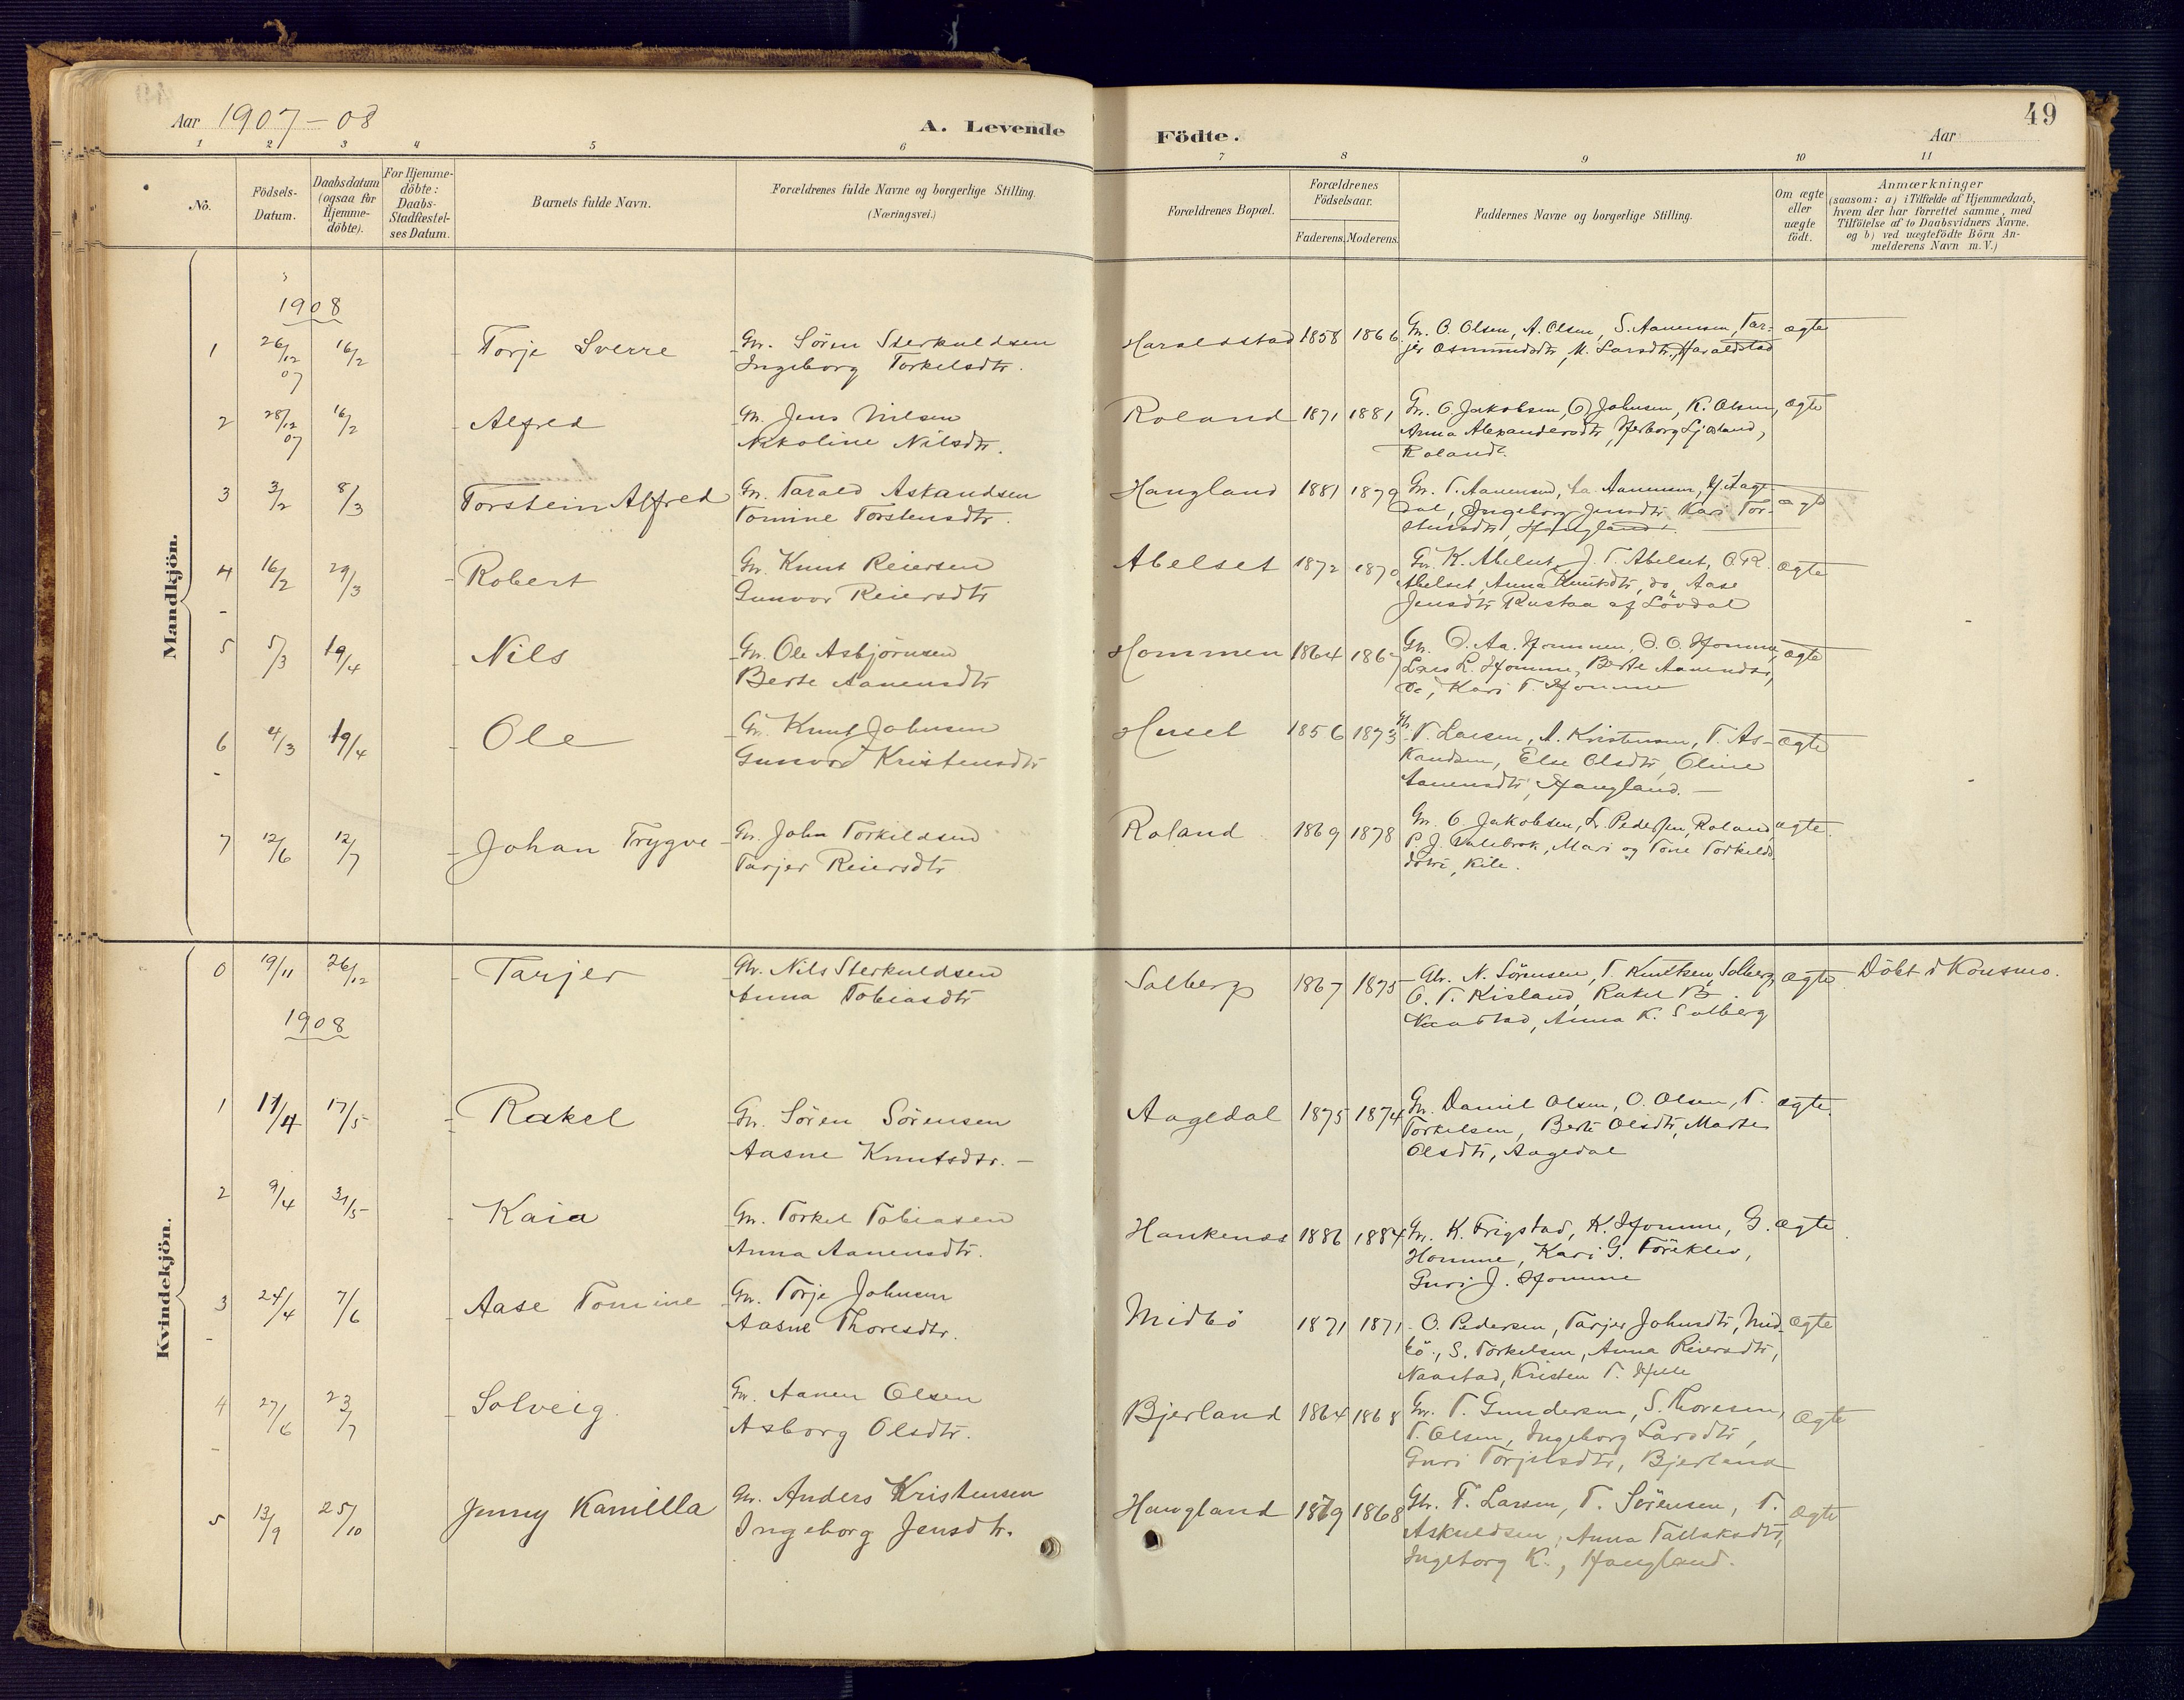 Aar 1907-08
A. Levende Födte.
Aar
49
1 2 3 4 5 6 7 8 9 10 11
No.
Födsels-Datum.
Daabsdatum (ogsaa for Hjemmedöbte).
For Hjemmedöbte: Daabs-Stadfæstelses Datum.
Barnets fulde Navn.
Forældrenes fulde Navne og borgerlige Stilling.
(Næringsvei.)
Forældrenes Bopæl.
Forældrenes Födselsaar.
Faderens. Moderens.
Faddernes Navne og borgerlige Stilling.
Om ægte eller uægte födt.
Anmærkninger
(saasom: a) i Tilfælde af Hjemmedaab,
hvem der har forrettet samme, med
Tilföielse af to Daabsvidners Navne.
og b) ved uægtefödte Börn An-
melderens Navn m. V.)
Mandkjön.
1908
1 26/12 07 16/2 Torje Sverre Gm. Sören Sterkuldsen Haraldstad 1858 1866 Gm. O. Olsen, A. Olsen, S. Aanensen, Tar- ægte
Ingeborg Torkelsdtr. jer Osmundsdtr, M. Larsdtr, Haraldstad
2 28/12 07 16/2 Alfred Gm. Jens Nilsen Roland 1871 1881 Gm. O. Jakobsen, O. Johnsen, K. Olsen, ægte
Nikoline Nilsdtr. Anna Alexandersdtr,
Roland.
3 3/2 8/3 Torstein Alfred Gm. Tarald Askandsen Haugland 1881 1879 Gm. T. Aanensen, Aanensen, ægte
Tomine Torstensdtr. dal, Ingeborg Jensdtr, Kari Tor-
stensdtr, Haugland.
4 16/2 29/3 Robert Gm. Knut Reiersen Abelset 1872 1870 Gm. K. Abelset, J. T. Abelset, O. R. ægte
Gunvor Reiersdtr Abelset, Anna Knutsdtr, do, Aase
Jensdtr Rustaa af Lövdal
5 5/3 19/4 Nils Gm. Ole Asbjörnsen Hommen 1864 1867 Gm. O. Aa. Hommen, O. O. Homme, ægte
Berte Aanensdtr Lars L. Homme, Berte Aanensdtr,
do, Kari T. Homme
6 4/3 19/4 Ole Gm. Knut Johnsen Huset 1856 1873 Gm. T. Larsen, A. Kristensen, T. As- ægte
Gunvor Kristensdtr kandsen, Else Olsdtr, Oline
Aanensdtr, Haugland. -
7 12/6 12/7 Johan Trygve Gm. John Torkildsen Roland 1869 1878 Gm. O. Jakobsen, Pedersen, Roland ægte.
Tarjer Reiersdtr P. J. Valebrok, Mari og Tone Torkilds
dötre, Kile.
Kvindekjön.
0 19/11 26/12 Tarjer Gbr. Nils Sterkuldsen Solberg 1867 1875 Gbr. N. Sörensen, T. Knutsen, Solberg, ægte Döbt i Konsmo.
Anna Tobiasdtr O. T. Kisland, Rakel B.
Naastad, Anna K. Solberg
1908
1 11/4 17/5 Rakel Gm. Sören Sörensen Aagedal 1875 1874 Gm. Daniel Olsen, O. Olsen, T. ægte.
Aasne Knutsdtr. - Torkelsen, Berte Olsdtr, Marte
Olsdtr, Aagedal
2 9/4 31/5 Kaia Gm. Torkel Tobiasen Haukenæs 1886 1884 Gm. K. Frigstad, K. Homme, G. ægte.
Anna Aanensdtr. Homme, Kari G. Töreklev,
Guri J. Homme
3 24/4 7/6 Aase Tomine Gm. Torje Johnsen Midbö 1871 1871 O. Pedersen, Tarjer Johnsdtr, Mid- ægte
Aasne Thoresdtr. bö., S. Torkelsen, Anna Reiersdtr,
Naastad, Kristen T. Hille
4 27/6 23/7 Solveig Gm. Aanen Olsen Bjerland 1864 1868 Gm. T. Gundersen, S. Thoresen, ægte
Asborg Olsdtr. T. Olsen, Ingeborg Larsdtr,
Guri Torjusdtr, Bjerland
5 13/9 25/10 Jenny Kamilla Gbr. Anders Kristensen Haugland 1879 1868 Gbr. T. Larsen, T. Sörensen, T. ægte
Ingeborg Jensdtr. Askuldsen, Anna Tallaksdtr,
Ingeborg K., Haugland.